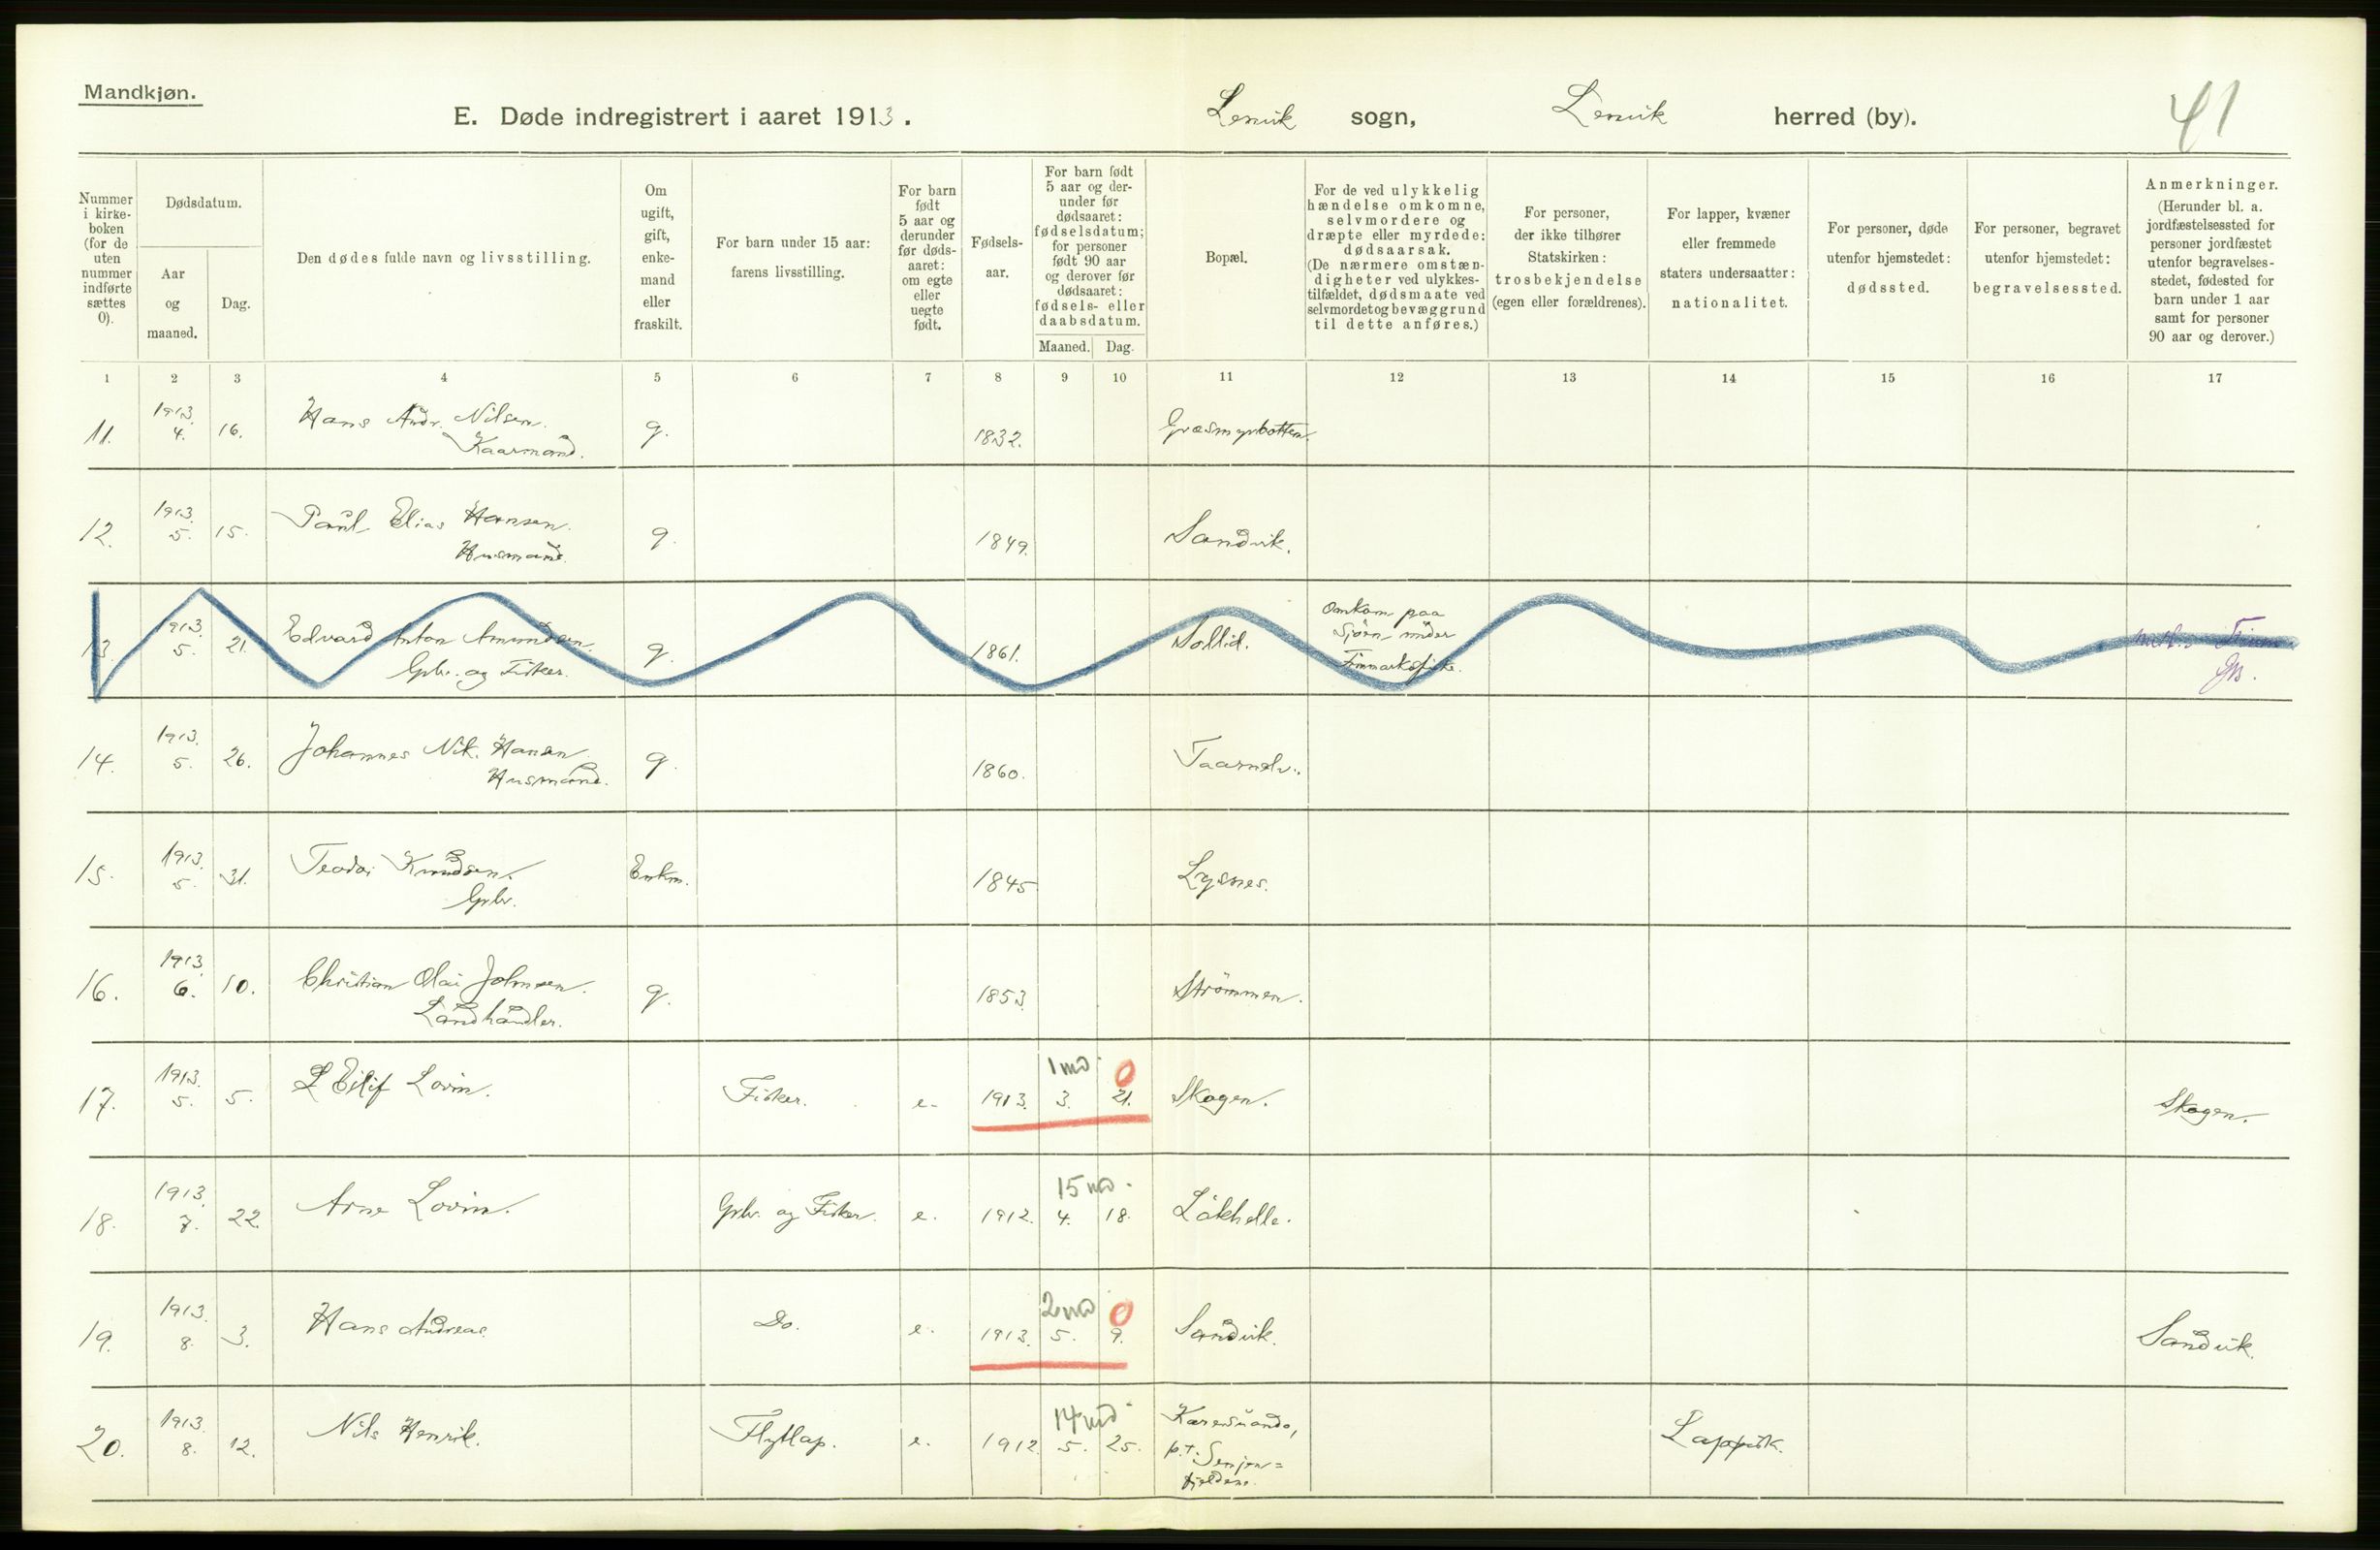 Mandkjøn.
E. Døde indregistrert i aaret 1913. Lenvik sogn, Lenvik herred (by).
41
Nummer i kirke-boken (for de uten nummer indførte sættes 0).
Dødsdatum.
Aar og maaned.
Dag.
Den dødes fulde navn og livsstilling.
Om ugift, gift, enke-mand eller fraskilt.
For barn under 15 aar: farens livsstilling.
For barn født 5 aar og derunder før døds-aaret: om egte eller uegte født.
Fødsels-aar.
For barn født 5 aar og der-under før dødsaaret: fødselsdatum; for personer født 90 aar og derover før dødsaaret: fødsels- eller daabsdatum.
Maaned. Dag.
Bopæl.
For de ved ulykkelig hændelse omkomne, selvmordere og dræpte eller myrdede: dødsaarsak. (De nærmere omstæn-digheter ved ulykkes-tilfældet, dødsmaate ved selvmordet og bevæggrund til dette anføres.)
For personer, der ikke tilhører Statskirken: trosbekjendelse (egen eller forældrenes).
For lapper, kvæner eller fremmede staters undersaatter: nationalitet.
For personer, døde utenfor hjemstedet: dødssted.
For personer, begravet utenfor hjemstedet: begravelsessted.
Anmerkninger. (Herunder bl. a. jordfæstelsessted for personer jordfæstet utenfor begravelses-stedet, fødested for barn under 1 aar samt for personer 90 aar og derover.)
1 2 3 4 5 6 7 8 9 10 11 12 13 14 15 16 17
11. 1913. 4. 16. Hans Andr. Nilsen. Kaarmand. g. 1832. Græsmyrbotten.
12. 1913. 5. 15. Paul Elias Hansen. Husmand. g. 1849. Sandvik.
13. 1913. 5. 21. Edvard Anton Amundsen. Gbr. og Fisker. g. 1861. Sollid. Omkom paa Sjøen under Finmarksfiske.
14. 1913. 5. 26. Johannes Nik. Hansen Husmand. g. 1860. Taarnelv.
15. 1913. 5. 31. Teodor Knudsen. Gbr. Enkm. 1845 Lysnes.
16. 1913. 6. 10. Christian Olai Johnsen. Landhandler. g. 1853. Strömmen.
17. 1913. 5. 5. Eilif Lovin. Fisker. e. 1913. 1 md. 3. 0 21. Skogen. Skogen.
18. 1913. 7. 22. Arne Lovin. Gbr. og Fisker. e. 1912. 15 md. 4. 18. Låkhelle.
19. 1913. 8. 3. Hans Andreas. Do. e. 1913. 2 md 5. 0 9. Sandvik. Sandvik.
20. 1913. 8. 12. Nils Henrik. Flytlap. e. 1912. 14 md 5. 25. Karesuando, p.t. Senjen=fjeldene. Lappisk.